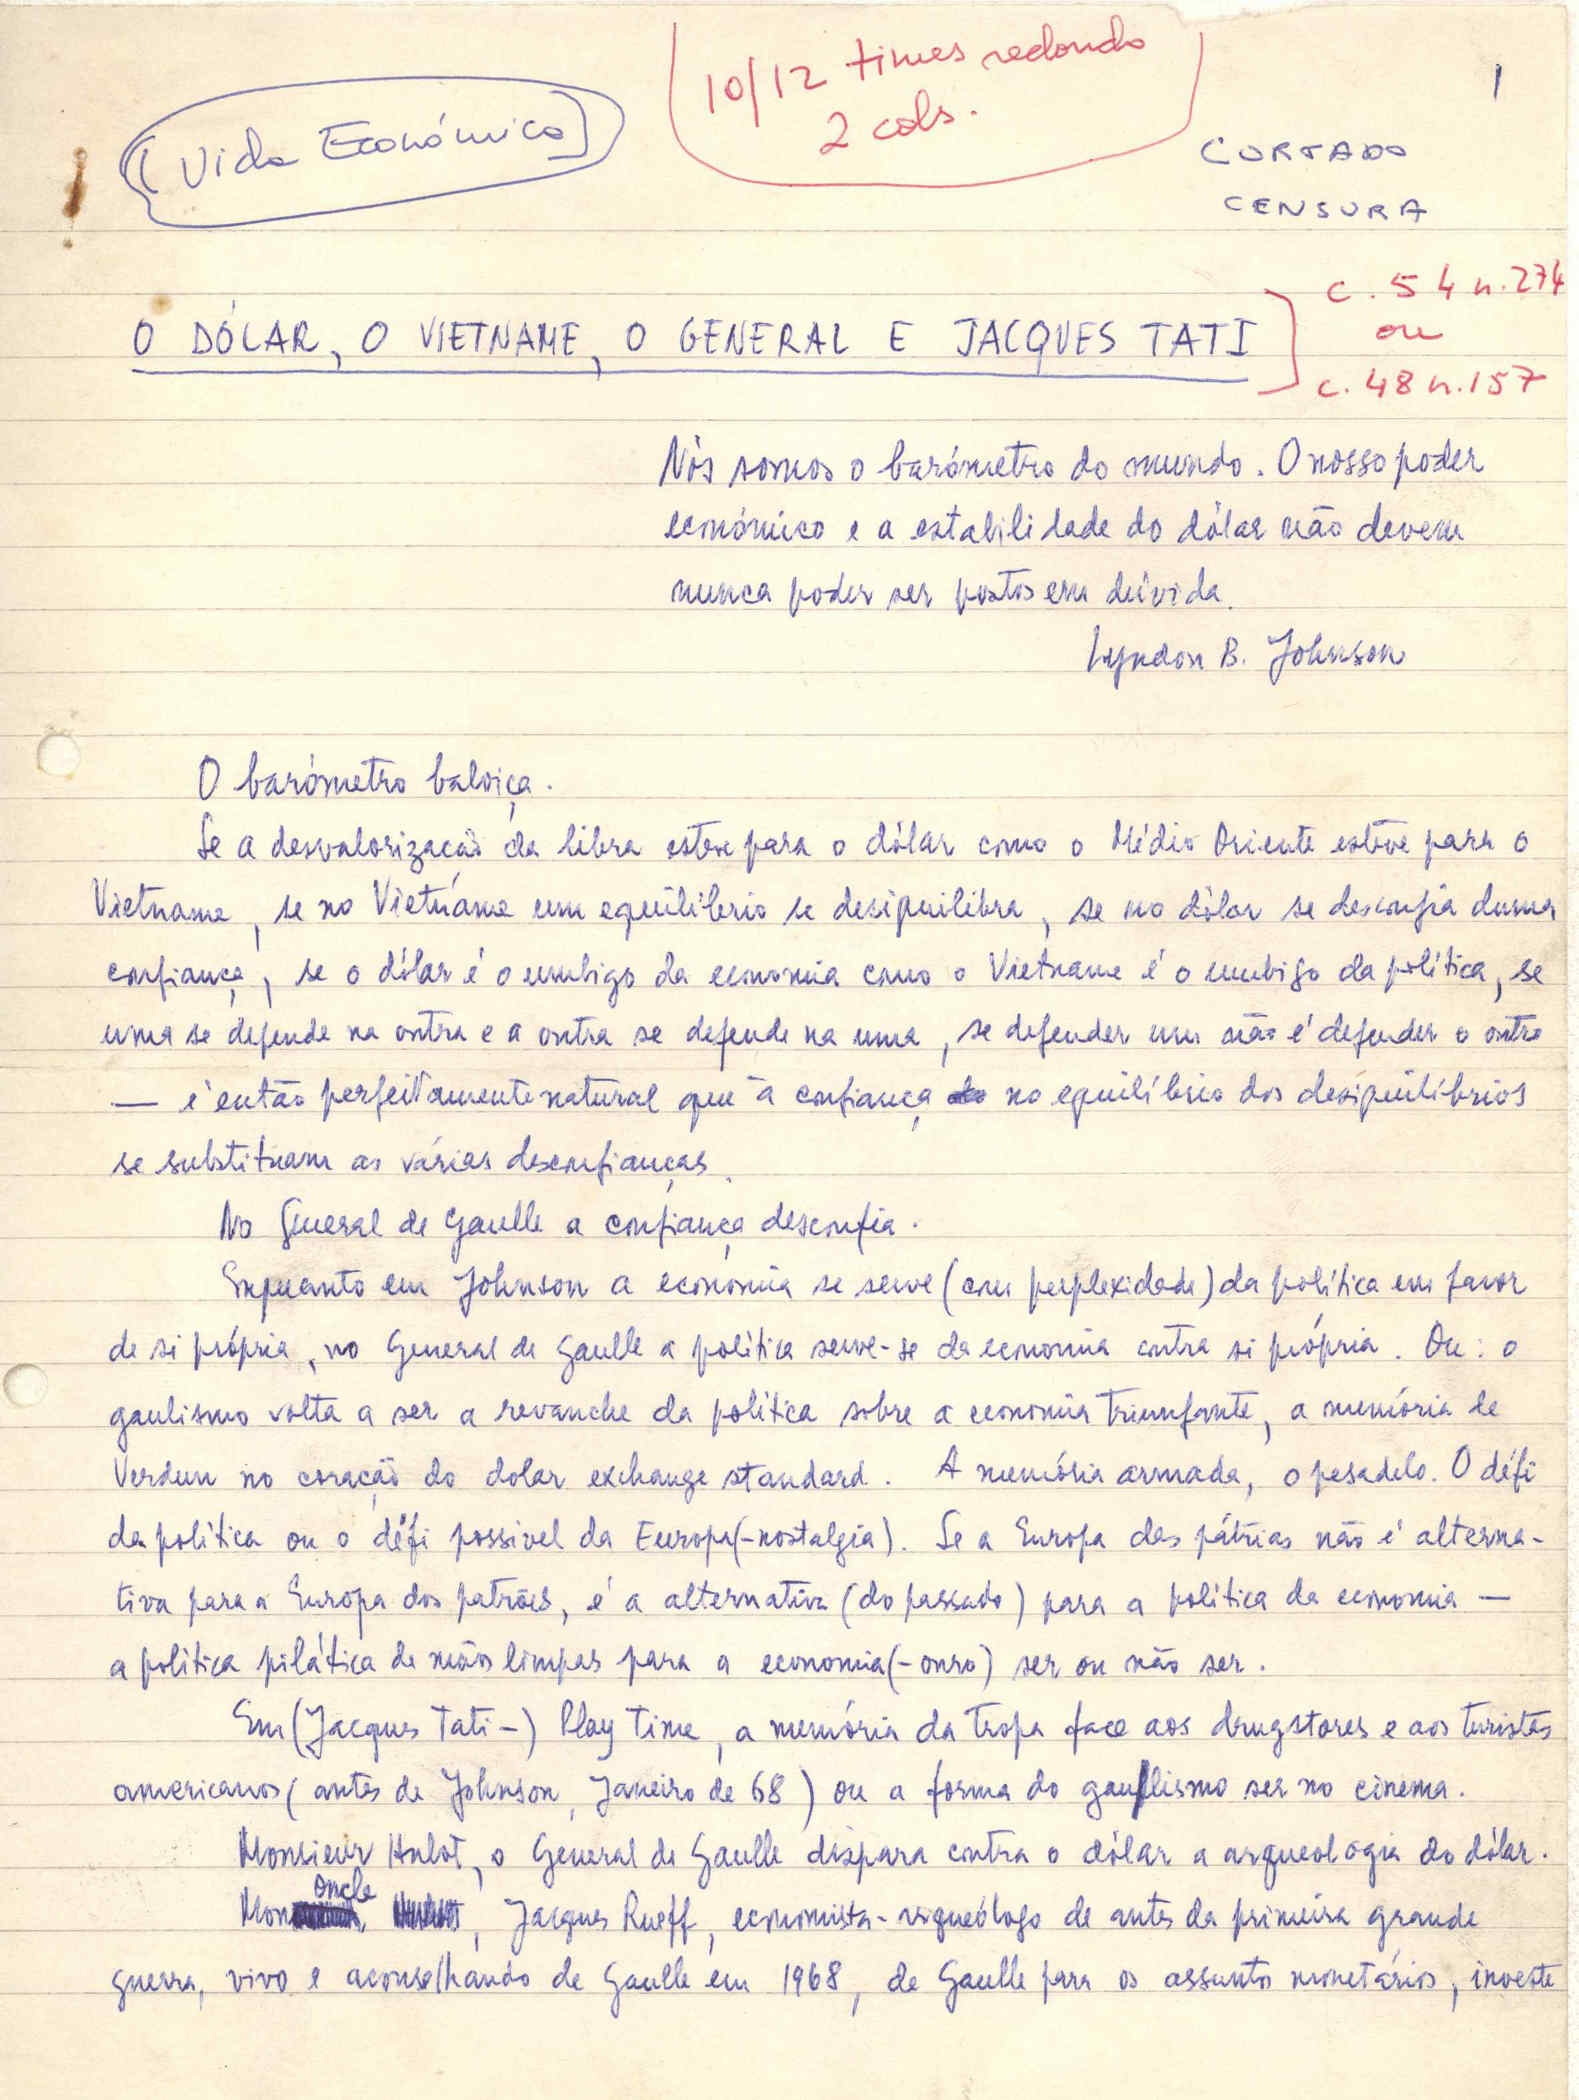 10/12 times redondo
2 cols.
1
(Vida Económica)
CORTADO
CENSURA
c. 54 n. 274
ou
c. 48 n. 157
O DÓLAR, O VIETNAME, O GENERAL E JACQUES TATI
Nós somos o barómetro do mundo. O nosso poder
económico e a estabilidade do dólar não devem
nunca poder ser postos em dúvida.
Lyndon B. Johnson
O barómetro baloiça.
Se a desvalorização da libra esteve para o dólar como o Médio Oriente esteve para o
Vietname, se no Vietname um equilíbrio se desiquilibra, se no dólar se desconfia duma
confiança, se o dólar é o umbigo da economia como o Vietname é o umbigo da política, se
uma se defende na outra e a outra se defende na uma, se defender um não é defender o outro
— é então perfeitamente natural que à confiança no equilíbrio dos desiquilíbrios
se substituam as várias desconfianças.
No General de Gaulle a confiança desconfia.
Enquanto em Johnson a economia se serve (com perplexidade) da política em favor
de si própria, no General de Gaulle a política serve-se da economia contra si própria. Ou: o
gaulismo volta a ser a revanche da política sobre a economia triunfante, a memória de
Verdun no coração do dolar exchange standard. A memória armada, o pesadelo. O défi
da política ou o défi possivel da Europa(-nostalgia). Se a Europa das pátrias não é alterna-
tiva para a Europa dos patrões, é a alternativa (do passado) para a política da economia —
a política pilática de mãos limpas para a economia(-ouro) ser ou não ser.
Em (Jacques Tati-) Play Time, a memória da tropa face aos drugstores e aos turistas
americanos (antes de Johnson, Janeiro de 68) ou a forma do gaullismo ser no cinema.
Monsieur Hulot, o General de Gaulle dispara contra o dólar a arqueologia do dólar.
Mon oncle, Jacques Rueff, economista-arqueólogo de antes da primeira grande
guerra, vivo e aconselhando de Gaulle em 1968, de Gaulle para os assuntos monetários, investe